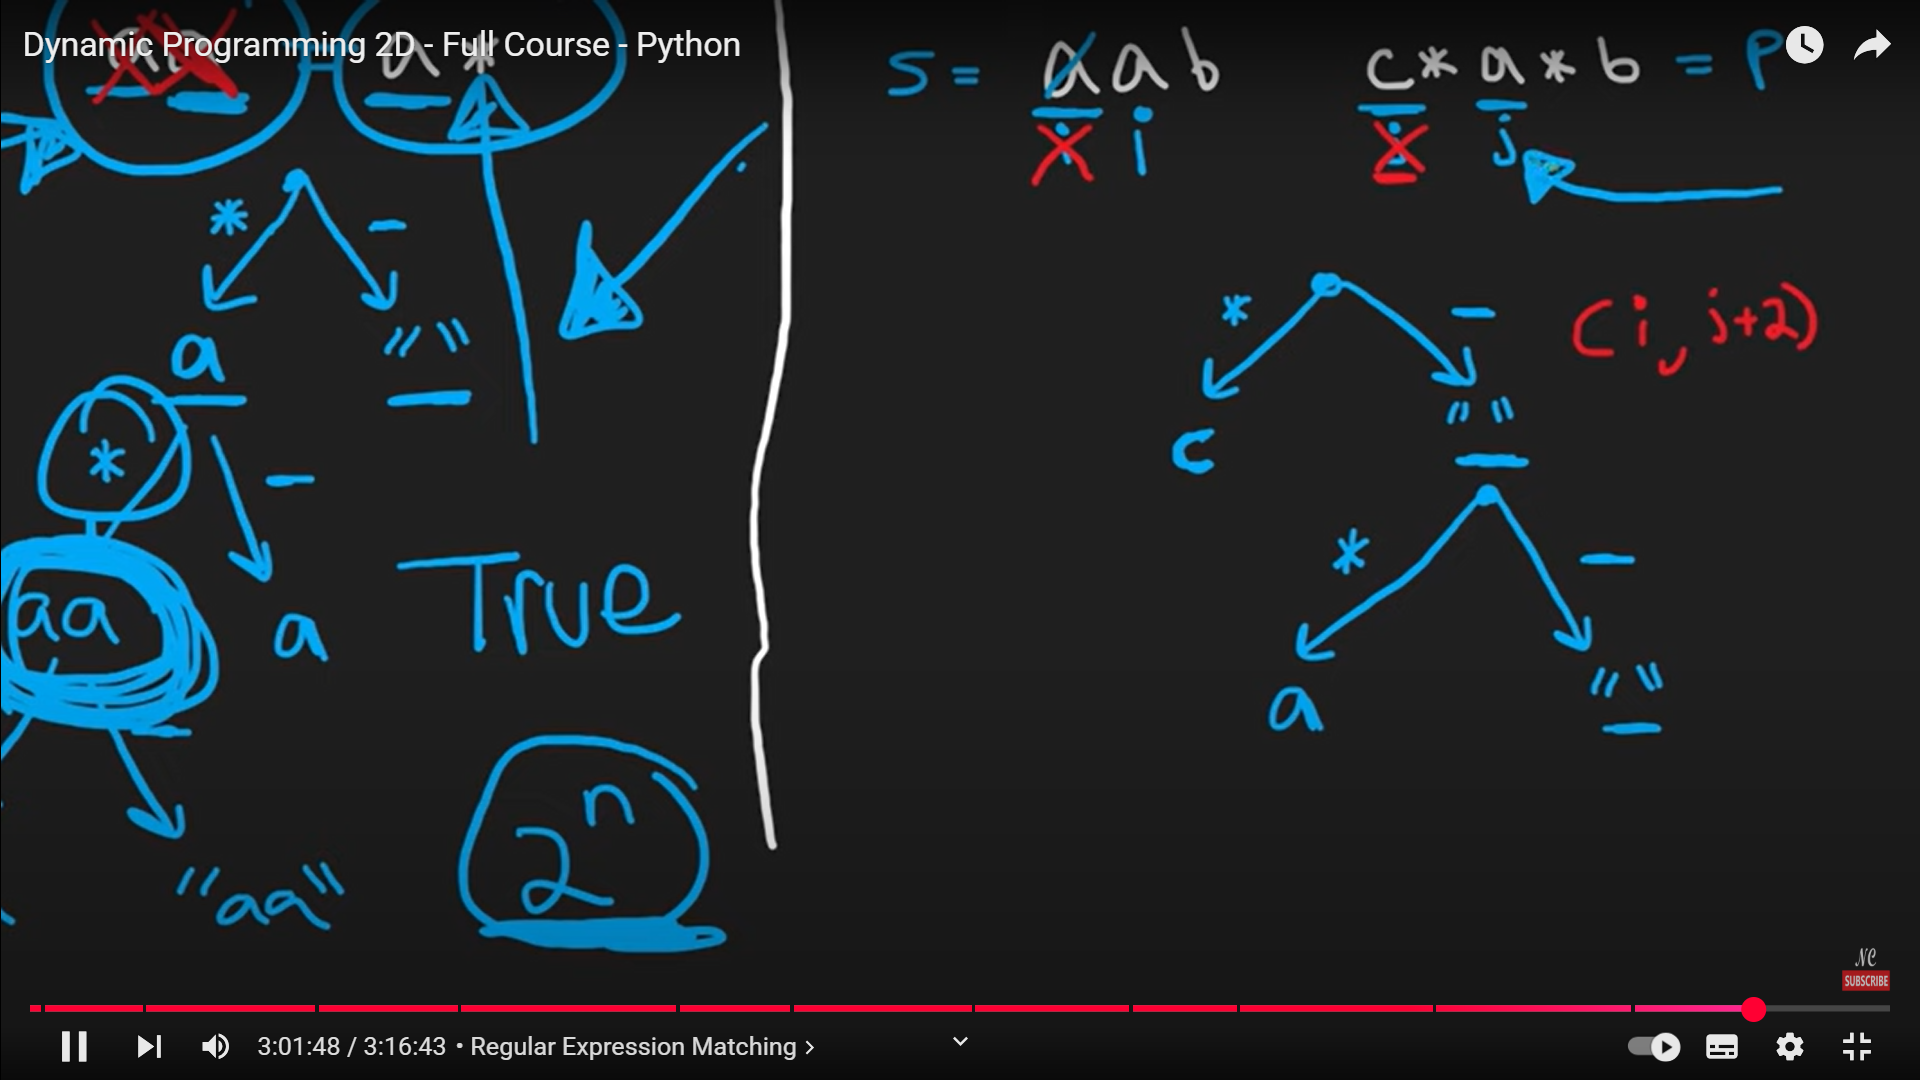 Dynamic Programming 2D - Full Course - Python
a *
S = a a b
c * a * b = P
i i
j j
* -
a " "
* -
aa a
True
"aa"
2^n
* - (i, j+2)
c " "
* -
a " "
NC
SUBSCRIBE
3:01:48 / 3:16:43 • Regular Expression Matching >